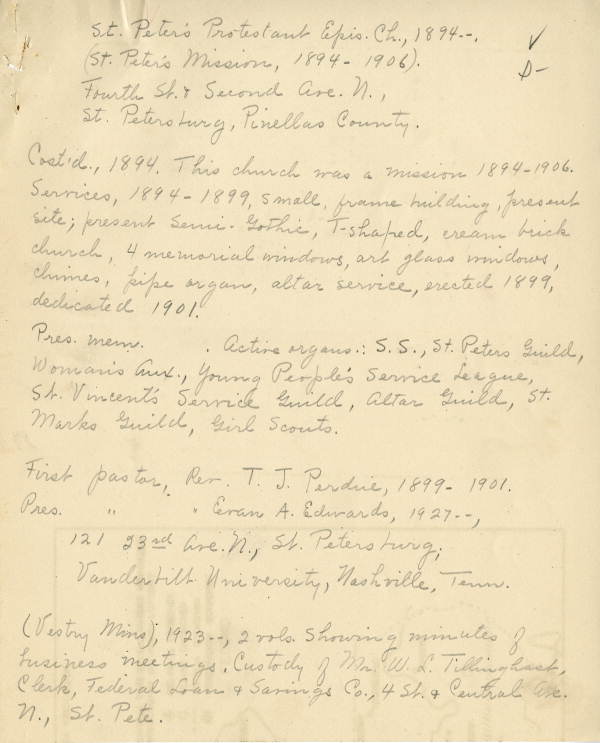 St. Peter's Protestant Epis. Ch., 1894--.
(St. Peter's Mission, 1894-1906).
Fourth St. & Second Ave. N.,
St. Petersburg, Pinellas County.
Cost'd., 1894. This church was a mission 1894-1906.
Services, 1894-1899, small, frame building, present
site; present Semi-Gothic, T-shaped, cream brick
church, 4 memorial windows, art glass windows,
chimes, pipe organ, altar service, erected 1899,
dedicated 1901.
Pres. mem. . Active organs.: S.S., St. Peters Guild,
Woman's Aux., Young People's Service League,
St. Vincent's Service Guild, Altar Guild, St.
Marks Guild, Girl Scouts.
First pastor, Rev. T. J. Perdue, 1899-1901.
Pres. " " Evan A. Edwards, 1927--,
121 23rd Ave. N., St. Petersburg,
Vanderbilt University, Nashville, Tenn.
(Vestry Mins), 1923--, 2 vols. Showing minutes of
business meetings. Custody of Mr. W. L. Tillinghast,
Clerk, Federal Loan & Savings Co., 4 St. & Central Ave.
N., St. Pete.